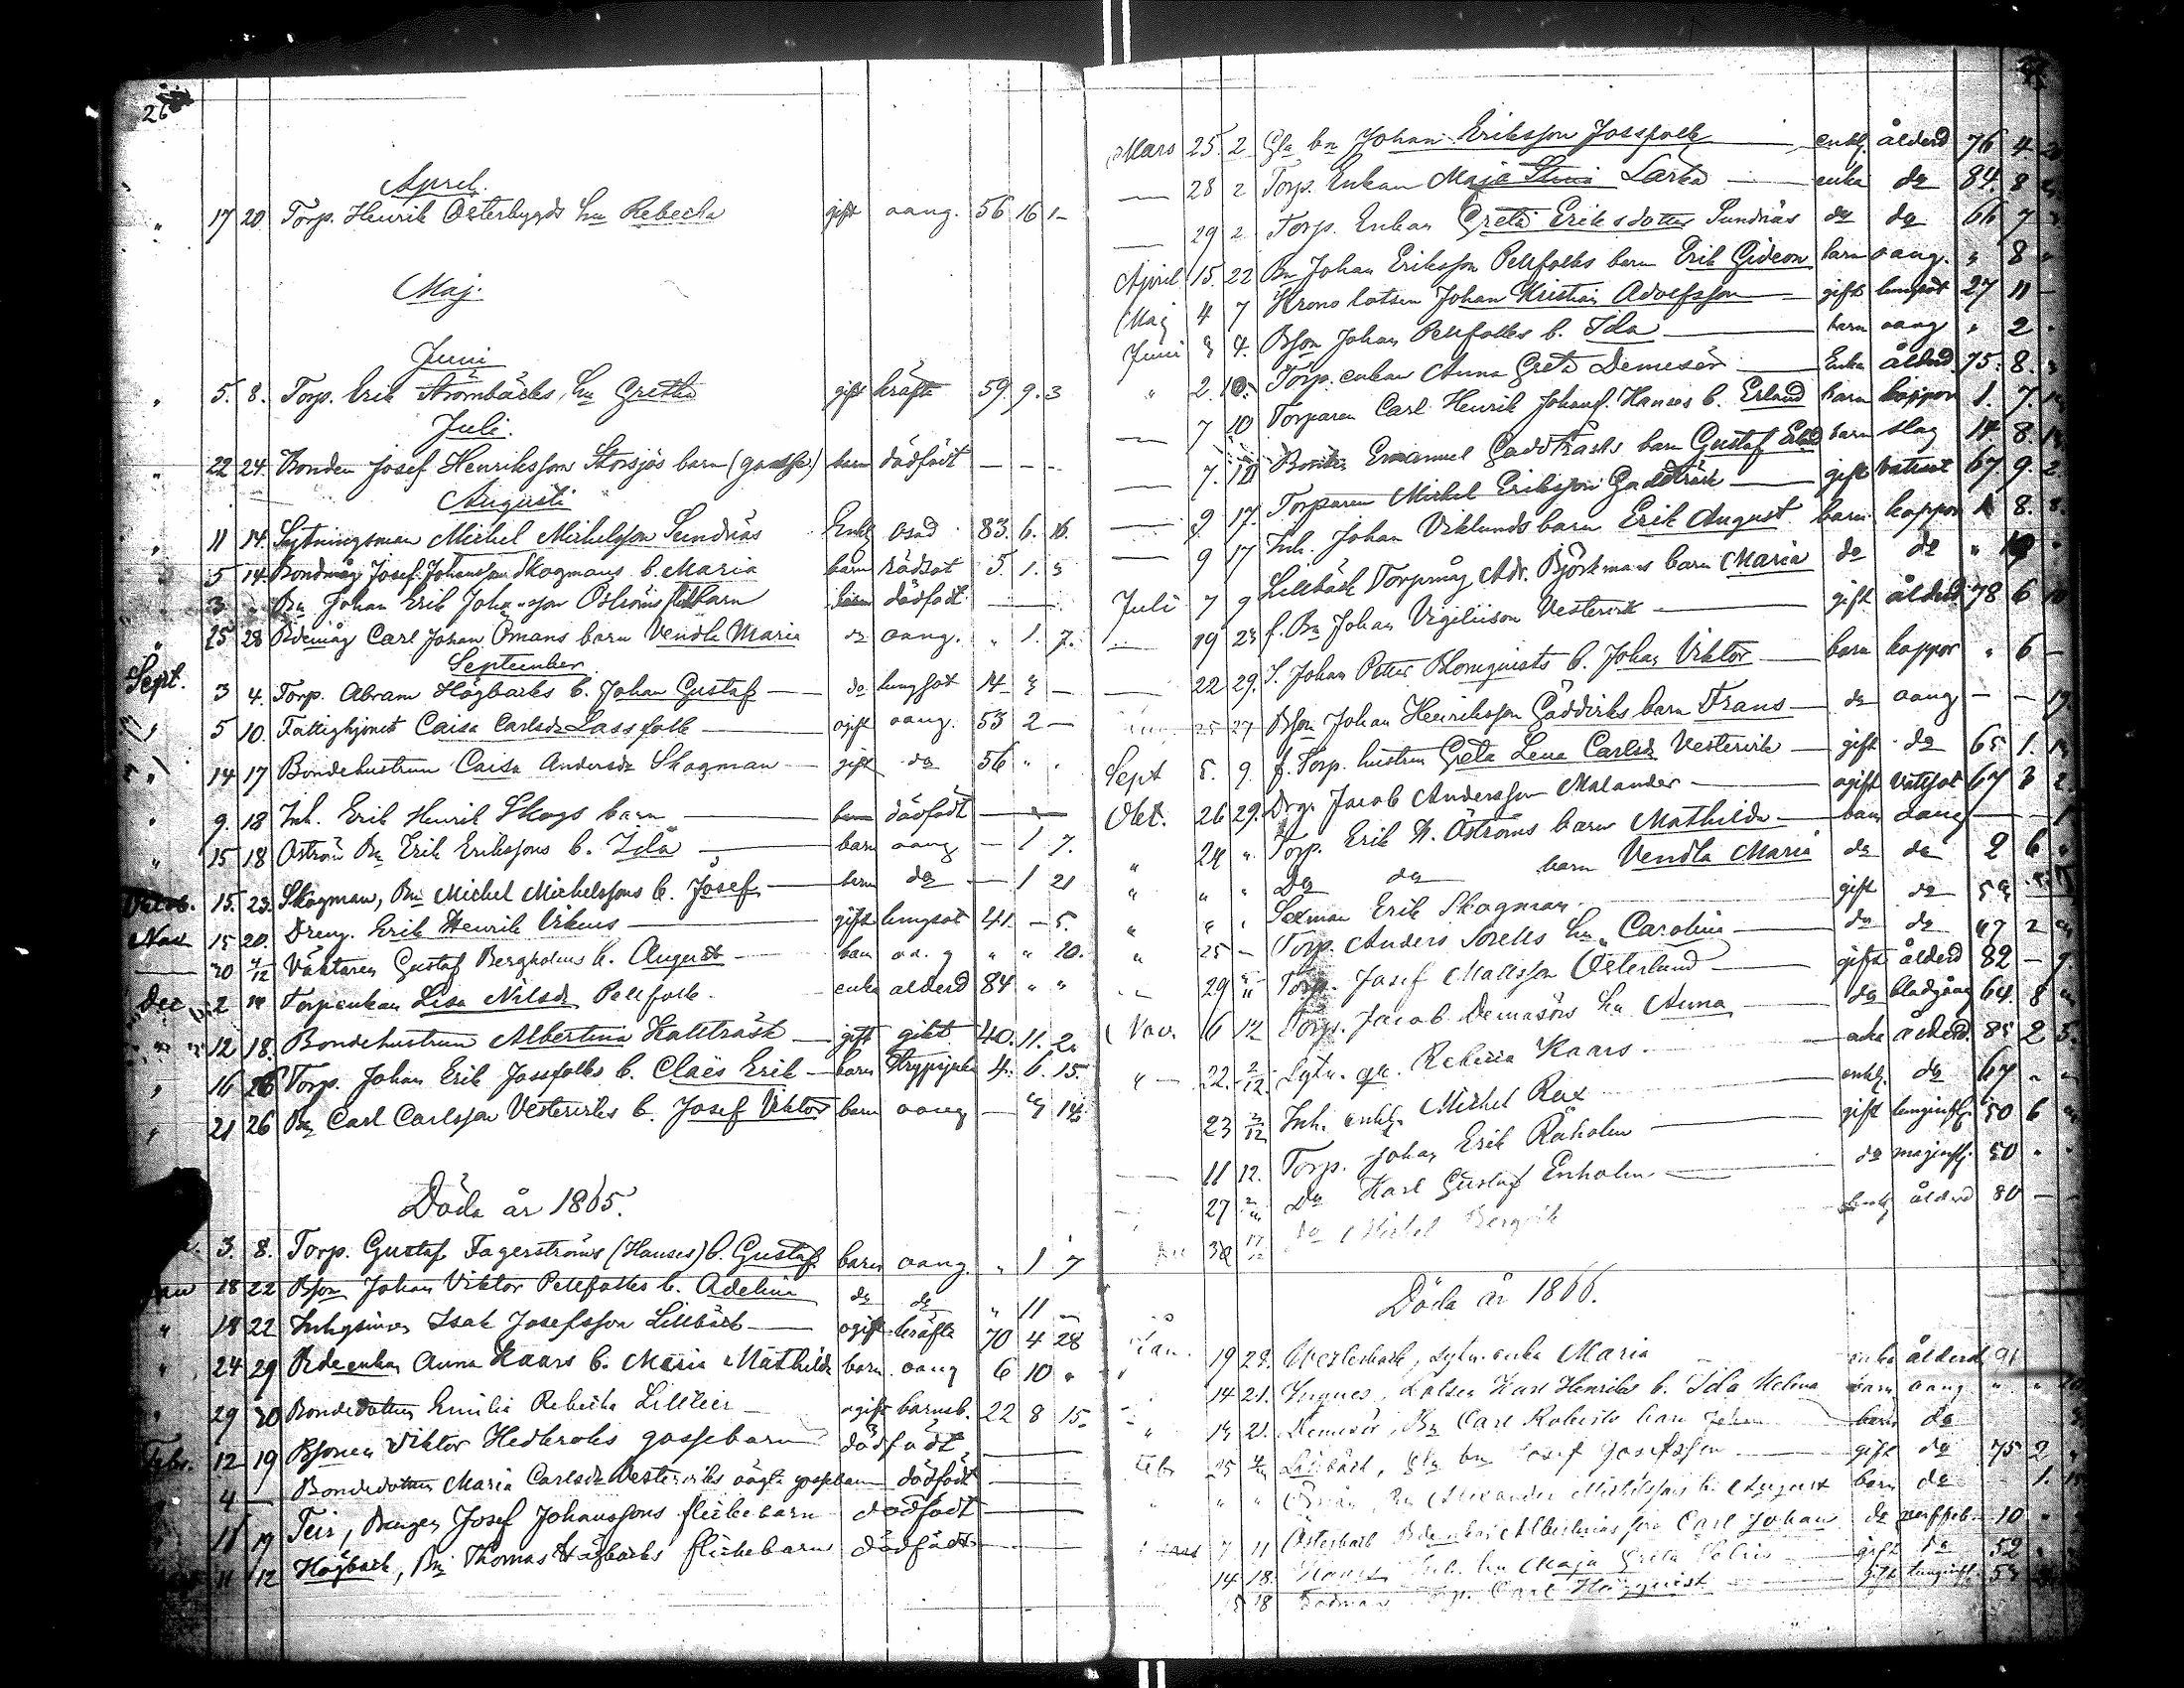 26
April.
" 17 20 Torp. Henrik Österbygds hu Rebecka gift oang. 56 16 1 –
Maj.
Juni
" 5. 8. Torp. Erik Strömbäcks, hu Gretha gift kräfta 59. 9. 3
Juli.
" 22 24. Bonden Josef Henriksson Storsjös barn (gosse) barn dödfödt – – –
Augusti
" 11 14. Sytningsman Michel Michelsson Sundnäs Enkl 83. 6. 16.
5 14. Bondmåg Josef Johansson Skogmans b. Maria barn rödsot 5. 1. 3
3 " Bn Johan Erik Johansson Öströms barn barn dödfödt –
" 25 28 Bdemåg Carl Johan Ömans barn Vendla Maria do oang. " 1. 7.
September
Sept. 3 4. Torp. Abram Högbacks b. Johan Gustaf do lungsot 14 3 –
" 5 10. Fattighjonet Caisa Carlsdr Lassfolk ogift oang. 53 2 –
" 14 17 Bondehustrun Caisa Andersdr Skogman gift do 56 " "
" 9. 18 Inh. Erik Henrik Skogs barn barn dödfödt –
" 15 18 Öström Bn Erik Erikssons b. Ida barn oang – 1 7.
15. 23. Skogman, Bn Michel Michelssons b. Josef barn do – 1 21
Nov 15 20. Dreng. Erik Henrik gift lungsot 41. – 5.
– 30 4/12 Väktaren Gustaf Bergholms b. August barn " " 20.
Dec 2 Torpenkan Lisa Nilsdr Pellfolk enka ålderd 84 " "
12 18. Bondehustrun Albertina Kallträsk gift gikt 40. 11. 2.
" 16 26 Torp. Johan Erik Jossfolks b. Claës Erik barn Strypsjuka 4. 6. 15.
" 21 26 Bn Carl Carlsson Vesterviks b. Josef Viktor barn oang – 14
Döda år 1865.
3. 8. Torp. Gustaf Fagerströms (Hanses) b. Gustaf barn oang. " 1 7
18 22 Bson Johan Viktor Pellfolks b. Adelina do do " 11 –
" 18 22 Inhysing Isak Josefsson Lillbäck ogift kräfta 70 4 28
" 24 29 Bdeenkan Anna Kaars b. Maria Mathilda barn oang 6 10 "
" 29 30 Bondedottern Emilia Rebecka Lillteir ogift barnsb. 22 8 15.
Febr. 12 19 Bsonen Viktor Hedkroks gossebarn dödfödt
4 – Bondedottern Maria Carlsdr Vesterviks oägta gossebarn dödfödt
11 19 Teir, Josef Johanssons flickebarn dödfödt
11 12 Högback, Bn Thomas Högbacks flickebarn dödfödt
Mars 25. 2 Gla bn Johan Eriksson Jossfolk enkl. ålderd 76 4.
– 28 2 Torp. Enkan Maja Stina Larka enka do 84. 8
– 29 2 Torp. Enkan Greta Eriksdotter Sundnäs do do 66 7
April 15. 22 Bn Johan Eriksson Pellfolks barn Erik Gideon barn oang. " 8 "
Maj 4 7 Kronolotsen Johan Kristian Adolfsson gift lungsot 27 11 –
Juni 3 4. Bson Johan Pellfolks b. Ida barn oang " 2 "
" 2. 10. Torp. enkan Anna Greta Demesör Enka ålderd. 75. 8. 3
– 7 10 Torparen Carl Henrik Johans. Hanses b. Erland barn koppor 1. 7.
– 7. 10 Bonden Emanuel Gäddträsks barn Gustaf barn slag 14 8.
– 9 17. Torparen Michel Eriksson Gäddträsk gift 67 9. 2
– 9 17 Inh. Johan Viklunds barn Erik August barn koppor 8. 8.
Juli 7 9 Lillbäck Torpmåg Adr. Björkmans barn Maria do do "
19 23 f. Bn Johan Vigiliison Vestervik gift ålderd 78 6
– 22 29. S. Johan Petter Blomqvists b. Johan Viktor barn koppor " 6 –
25 27 Bson Johan Henriksson Gäddirks barn Frans do oang – – 19
Sept 5. 9. f. Torp. hustrun Greta Lena Carlsdr Vestervik gift do 65 1.
Okt. 26 29. Drgr Jacob Andersson Malander ogift Vattsot 67 3 2
" 24 " Torp. Erik H. Öströms barn Mathilda barn oang – – 1
" " " Do do barn Vendla Maria do do 2 6 "
" " " Sexman Erik Skogman gift do
" 25 – Torp. Anders Sorells hu Carolina do do 47 2
29 Torp. Josef Mattsson Österlund gift ålderd 82 –
Nov. 6 12 Torp. Jacob Demasörs hu Anna do blodgång 64. 8
" 22. 2/12 Sytn. Rebecca Kaars enka ålderd. 85 2 5.
23 3/12 Inh. enkl. Michel Rax enkl. do 67 "
– 11 12. Torp. Johan Erik Råholm gift lunginfl. 50 6
27 Do Karl Gustaf Enholm do 50 " "
30 do Michel Bergvik ålderd 80 – –
Döda år 1866.
Jan. 19 28. Westerback, sytn. enka Maria enka ålderd 91
" 14 21. Lotsen Karl Henriks b. Ida Helena barn oang " "
" 14 21. Demesör, Bn Carl Roberts barn barn do
Febr 25 Lillbäck, Gla bn Josef Josefsson gift do 75 2
" " " Öman, Bn Alexander Michelssons b. August barn do 1.
7 11 Österback Bdeenkan Albertinas son Carl Johan do nerffeb. 10 "
14 18. Inh. hu Maja Greta gift do 52
18 Torp. Carl Högqvist gift lunginfl. 53